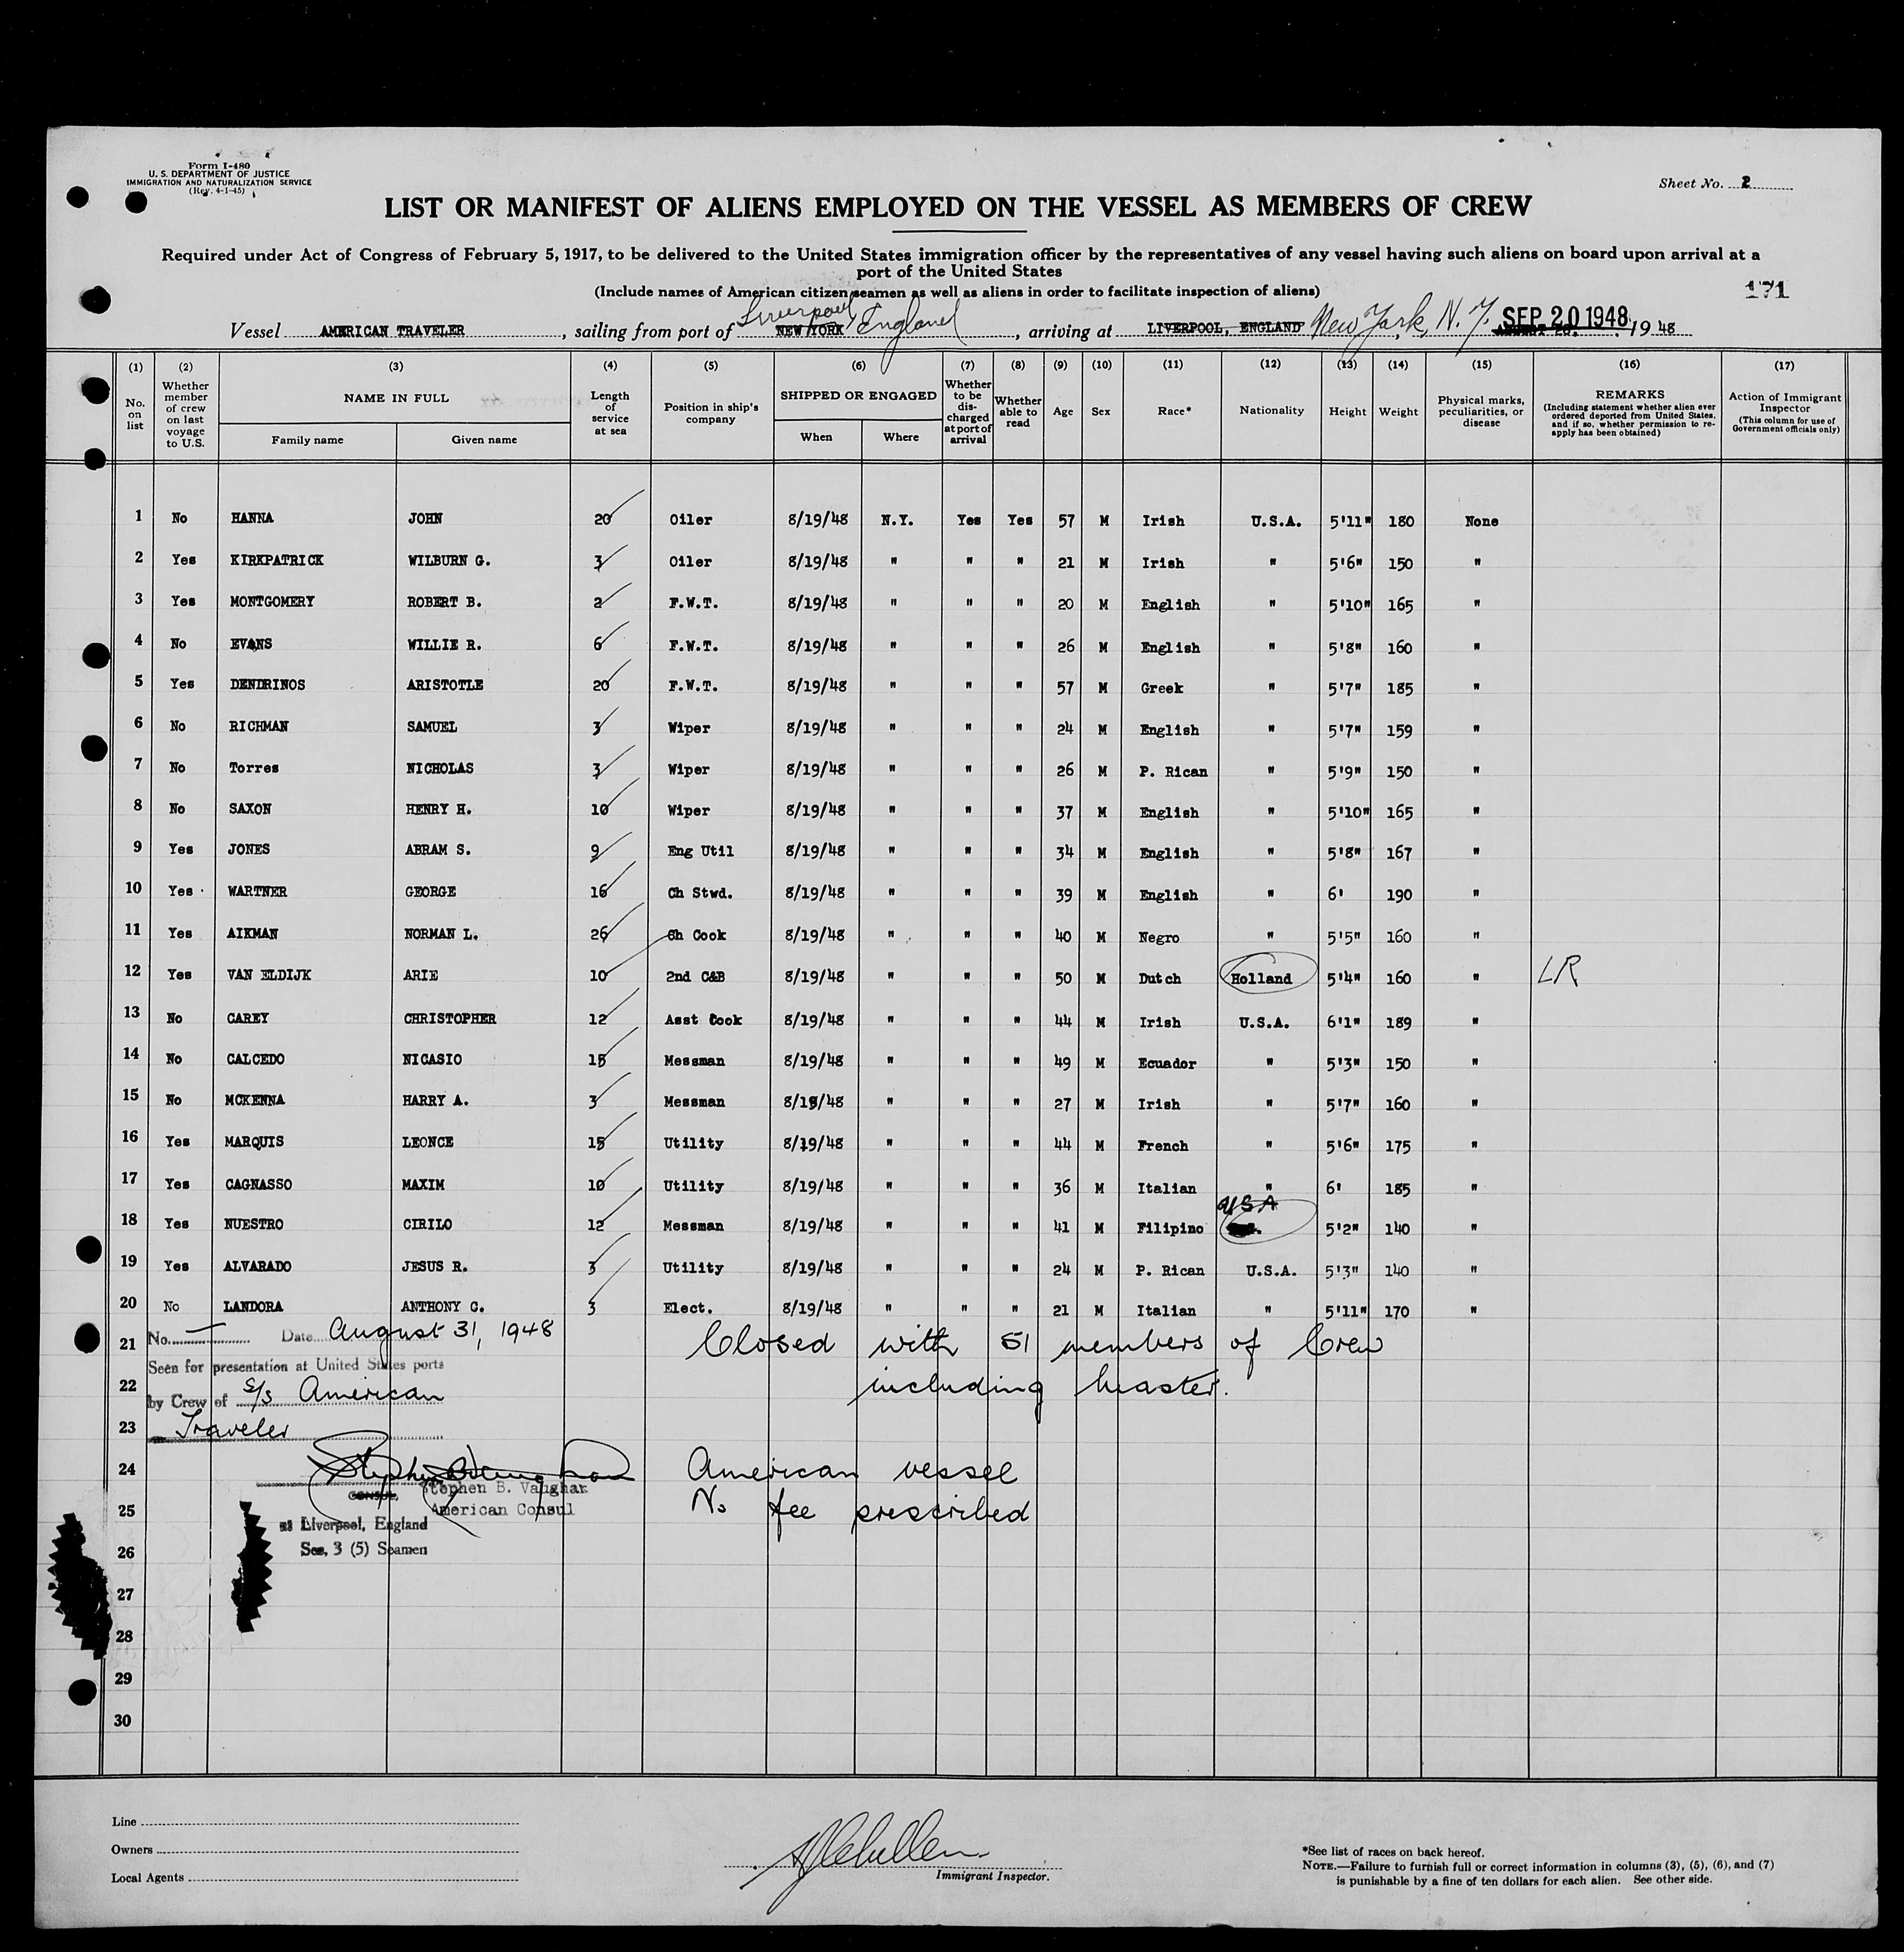 Form I-480
U. S. DEPARTMENT OF JUSTICE
IMMIGRATION AND NATURALIZATION SERVICE
(Rev. 4-1-45)
Sheet No. 2
LIST OR MANIFEST OF ALIENS EMPLOYED ON THE VESSEL AS MEMBERS OF CREW
Required under Act of Congress of February 5, 1917, to be delivered to the United States immigration officer by the representatives of any vessel having such aliens on board upon arrival at a
port of the United States
(Include names of American citizen seamen as well as aliens in order to facilitate inspection of aliens)
171
Vessel AMERICAN TRAVELER, sailing from port of NEW YORK Liverpool, England, arriving at LIVERPOOL, ENGLAND New York, N.Y. SEP 20 1948, 1948
(1) (2) (3) (4) (5) (6) (7) (8) (9) (10) (11) (12) (13) (14) (15) (16) (17)
No. on list
Whether member of crew on last voyage to U.S.
NAME IN FULL
Family name
Given name
Length of service at sea
Position in ship's company
SHIPPED OR ENGAGED
When
Where
Whether to be discharged at port of arrival
Whether able to read
Age
Sex
Race*
Nationality
Height
Weight
Physical marks, peculiarities, or disease
REMARKS
(Including statement whether alien ever ordered deported from United States, and if so, whether permission to reapply has been obtained)
Action of Immigrant Inspector
(This column for use of Government officials only)
1 No HANNA JOHN 20 Oiler 8/19/48 N.Y. Yes Yes 57 M Irish U.S.A. 5'11" 180 None
2 Yes KIRKPATRICK WILBURN G. 3 Oiler 8/19/48 " " " 21 M Irish " 5'6" 150 "
3 Yes MONTGOMERY ROBERT B. 2 F.W.T. 8/19/48 " " " 20 M English " 5'10" 165 "
4 No EVANS WILLIE R. 6 F.W.T. 8/19/48 " " " 26 M English " 5'8" 160 "
5 Yes DENDRINOS ARISTOTLE 20 F.W.T. 8/19/48 " " " 57 M Greek " 5'7" 185 "
6 No RICHMAN SAMUEL 3 Wiper 8/19/48 " " " 24 M English " 5'7" 159 "
7 No Torres NICHOLAS 3 Wiper 8/19/48 " " " 26 M P. Rican " 5'9" 150 "
8 No SAXON HENRY H. 10 Wiper 8/19/48 " " " 37 M English " 5'10" 165 "
9 Yes JONES ABRAM S. 9 Eng Util 8/19/48 " " " 34 M English " 5'8" 167 "
10 Yes WARTNER GEORGE 16 Ch Stwd. 8/19/48 " " " 39 M English " 6' 190 "
11 Yes AIKMAN NORMAN L. 26 Ch Cook 8/19/48 " " " 40 M Negro " 5'5" 160 "
12 Yes VAN ELDIJK ARIE 10 2nd C&B 8/19/48 " " " 50 M Dutch Holland 5'4" 160 " LR
13 No CAREY CHRISTOPHER 12 Asst Cook 8/19/48 " " " 44 M Irish U.S.A. 6'1" 189 "
14 No CALCEDO NICASIO 15 Messman 8/19/48 " " " 49 M Ecuador " 5'3" 150 "
15 No MCKENNA HARRY A. 3 Messman 8/19/48 " " " 27 M Irish " 5'7" 160 "
16 Yes MARQUIS LEONCE 15 Utility 8/19/48 " " " 44 M French " 5'6" 175 "
17 Yes CAGNASSO MAXIM 10 Utility 8/19/48 " " " 36 M Italian " 6' 185 "
18 Yes NUESTRO CIRILO 12 Messman 8/19/48 " " " 41 M Filipino USA 5'2" 140 "
19 Yes ALVARADO JESUS R. 3 Utility 8/19/48 " " " 24 M P. Rican U.S.A. 5'3" 140 "
20 No LANDORA ANTHONY C. 3 Elect. 8/19/48 " " " 21 M Italian " 5'11" 170 "
21 No. — Date August 31, 1948 Closed with 51 members of Crew
Seen for presentation at United States ports
22 by Crew of S/S American including Master.
23 Traveler
24 American vessel
CONSUL, Stephen B. Vaughan
25 American Consul No fee prescribed
at Liverpool, England
26 Sec. 3 (5) Seamen
27
28
29
30
Line
Owners
Local Agents
Immigrant Inspector.
*See list of races on back hereof.
NOTE.—Failure to furnish full or correct information in columns (3), (5), (6), and (7)
is punishable by a fine of ten dollars for each alien. See other side.